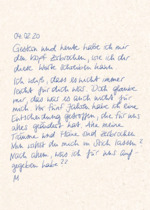 04.02.20
Gestern und heute habe ich mir
den Kopf zerbrochen, wie ich dir
diese Worte schreiben kann.
Ich weiß, dass es nicht immer
leicht für dich war. Doch glaube
mir, das war es auch nicht für
mich. Vor fünf Jahren habe ich eine
Entscheidung getroffen, die für uns
alles geändert hat. Alle meine
Träume und Pläne sind zerbrochen.
Nun willst du mich im Stich lassen?
Nach allem, was ich für uns auf-
gegeben habe??
M